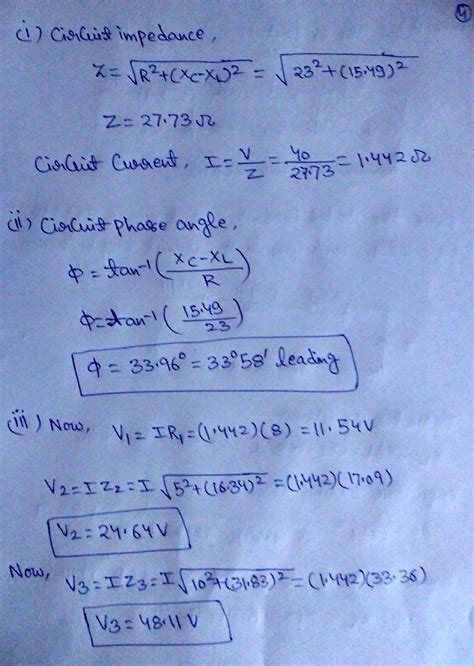 4
(i) Circuit impedance,
Z = √R²+(Xc-XL)² = √23²+(15.49)²
Z = 27.73 Ω
Circuit Current, I = V/Z = 40/27.73 = 1.442 Ω
(ii) Circuit phase angle,
φ = tan⁻¹ (Xc-XL/R)
φ = tan⁻¹ (15.49/23)
φ = 33.96° = 33°58' leading
(iii) Now, V1 = IR1 = (1.442)(8) = 11.54V
V2 = IZ2 = I √5²+(16.34)² = (1.442)(17.09)
V2 = 24.64V
Now, V3 = IZ3 = I √10²+(31.83)² = (1.442)(33.36)
V3 = 48.11 V